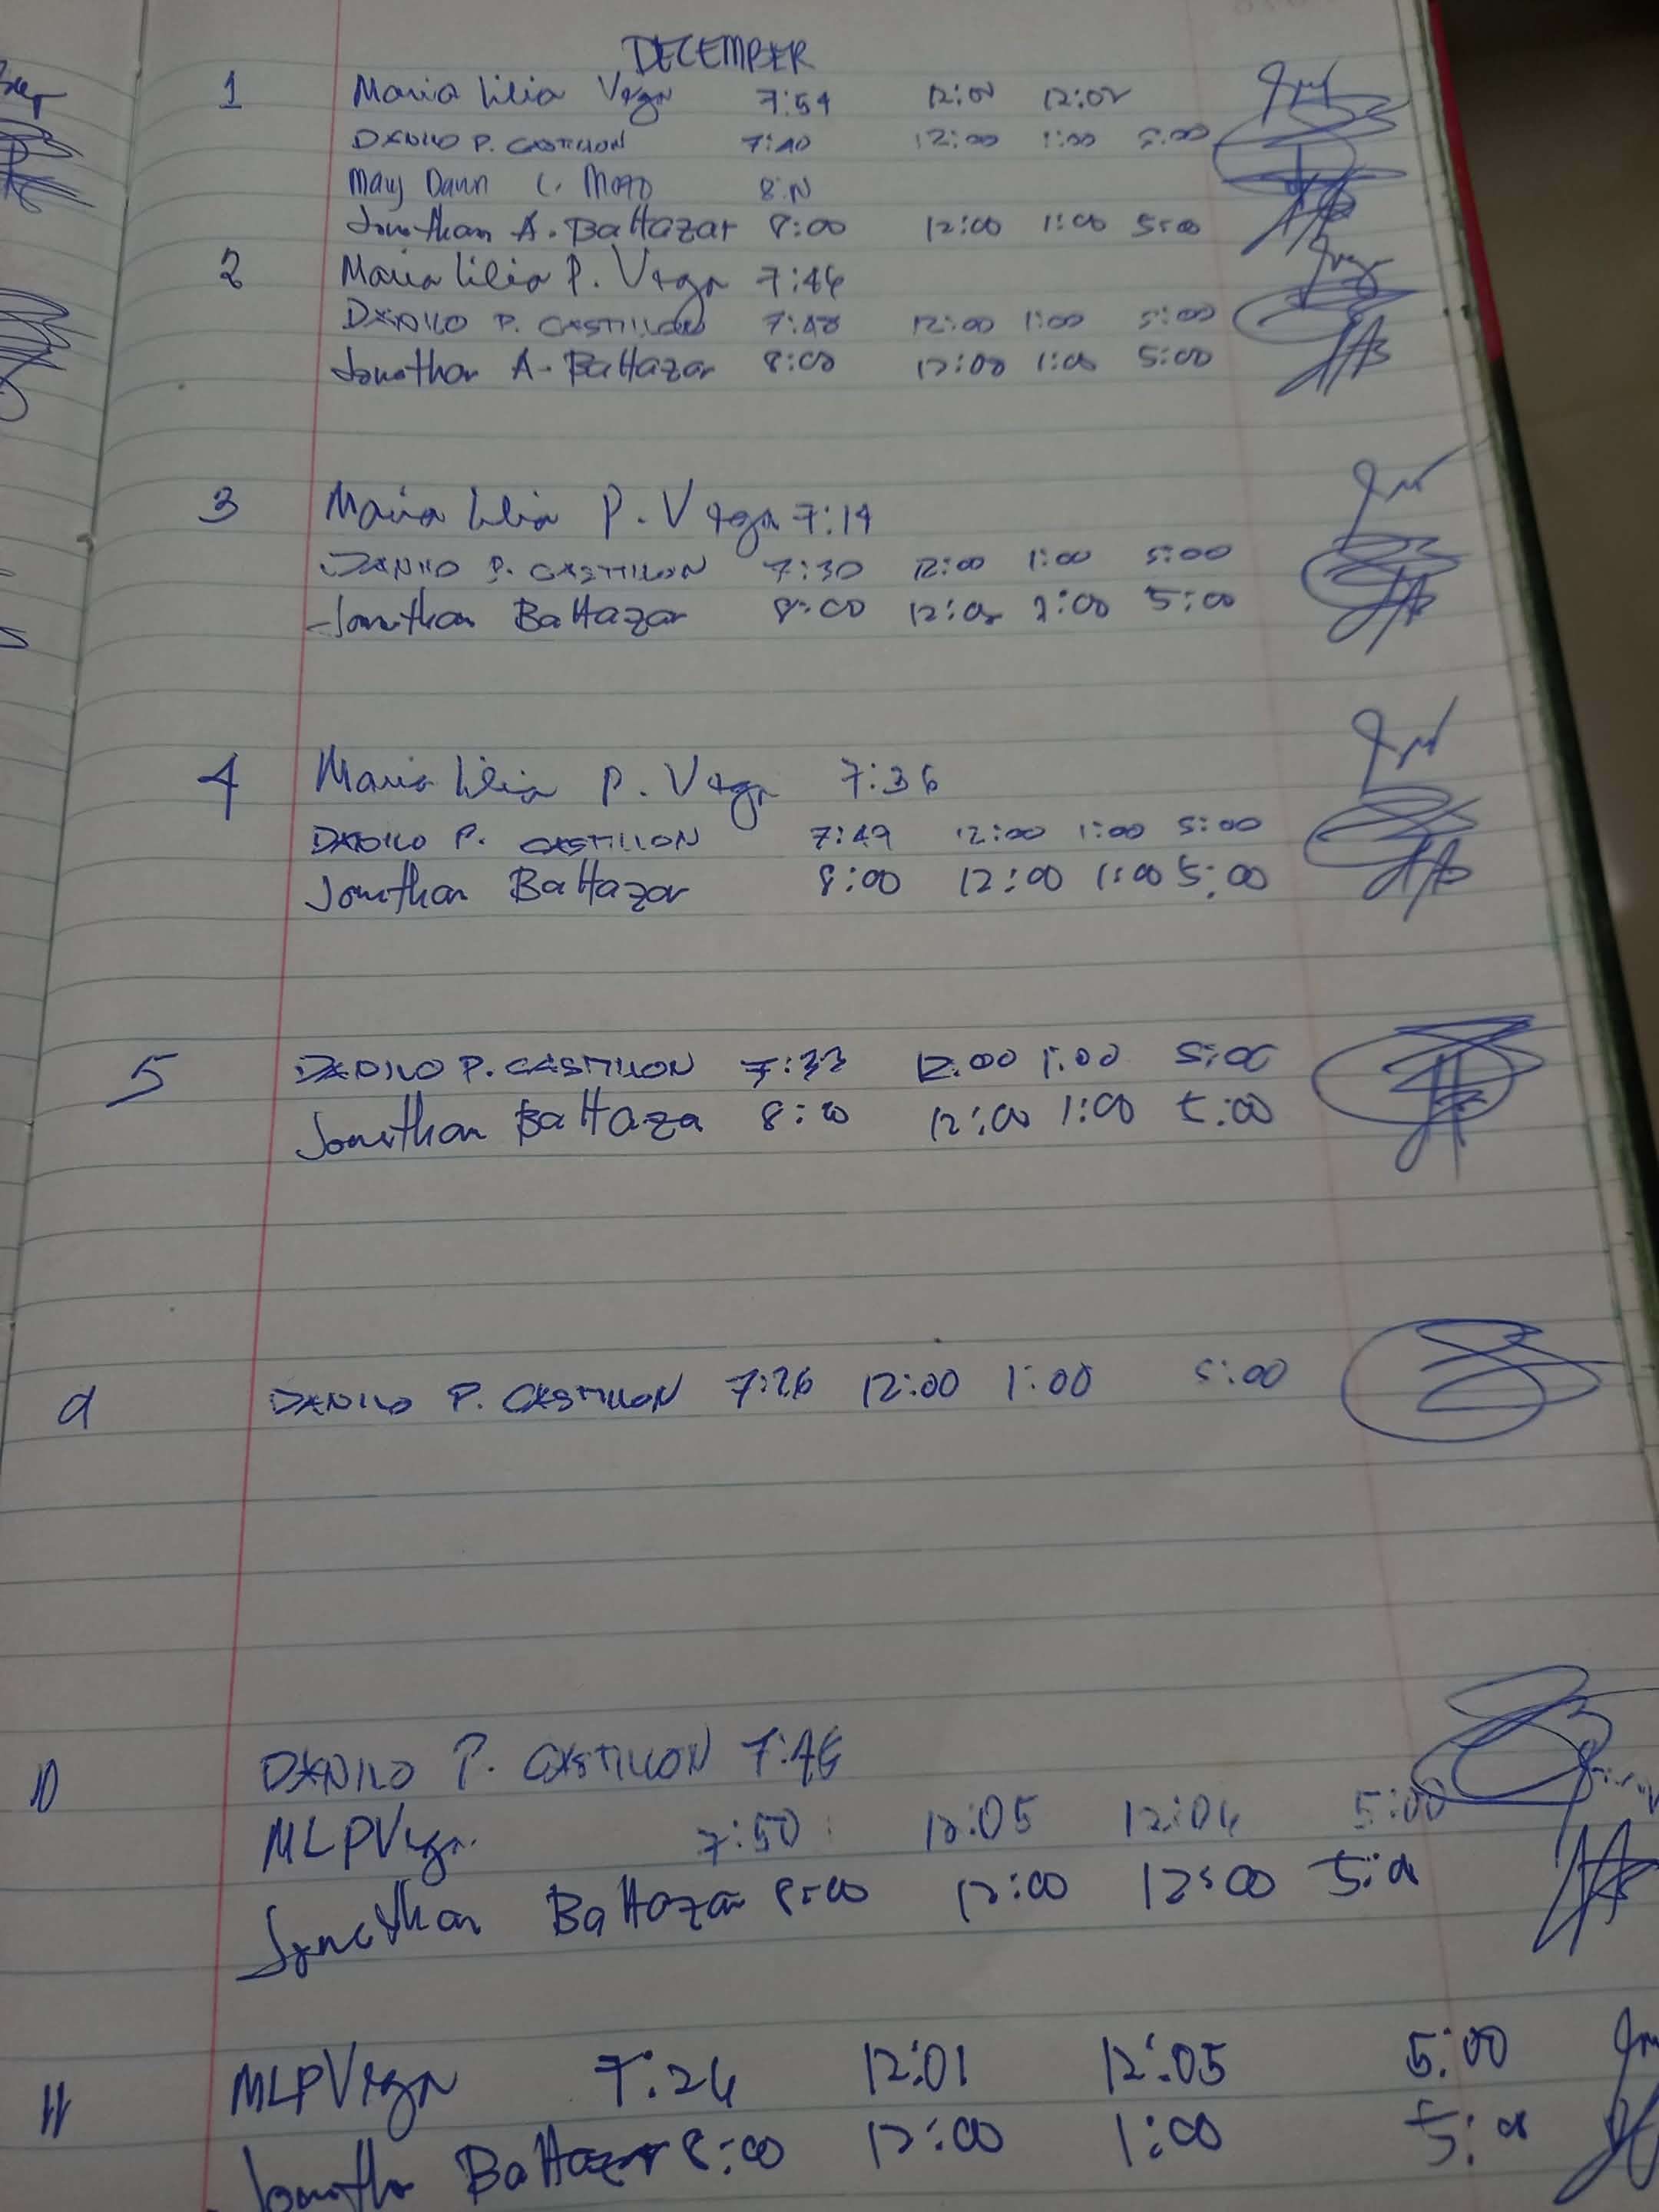 DECEMBER
1 Maria Lilia Vega 7:54 12:01 12:02
DANILO P. CASTILLON 7:40 12:00 1:00 5:00
Mary Dawn C. 8:
Jonathan A. Baltazar 8:00 12:00 1:00 5:00
2 Maria Lilia P. Vega 7:46
DANILO P. CASTILLON 7:48 12:00 1:00 5:00
Jonathan A. Baltazar 8:00 12:00 1:00 5:00
3 Maria Lilia P. Vega 7:14
DANILO P. CASTILLON 7:30 12:00 1:00 5:00
Jonathan Baltazar 8:00 12:00 1:00 5:00
4 Maria Lilia P. Vega 7:36
DANILO P. CASTILLON 7:49 12:00 1:00 5:00
Jonathan Baltazar 8:00 12:00 1:00 5:00
5 DANILO P. CASTILLON 7:33 12:00 1:00 5:00
Jonathan Baltaza 8:00 12:00 1:00 5:00
9 DANILO P. CASTILLON 7:26 12:00 1:00 5:00
10 DANILO P. CASTILLON 7:46
MLPVega 7:50 12:05 12:06 5:00
Jonathan Baltazar 8:00 12:00 12:00 5:00
11 MLPVega 7:26 12:01 12:05 5:00
Jonatha Baltazar 8:00 12:00 1:00 5:00